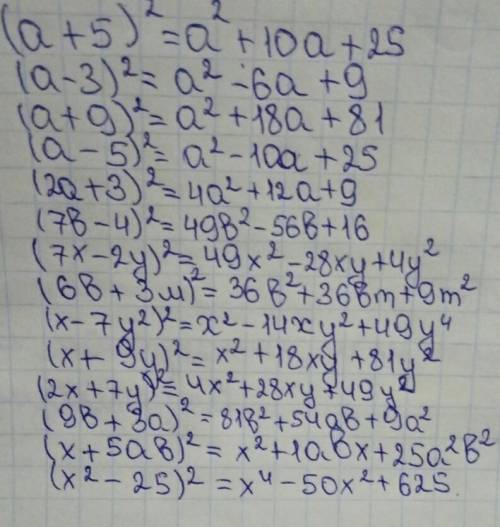 (a + 5)² = a² + 10a + 25
(a - 3)² = a² - 6a + 9
(a + 9)² = a² + 18a + 81
(a - 5)² = a² - 10a + 25
(2a + 3)² = 4a² + 12a + 9
(7в - 4)² = 49в² - 56в + 16
(7x - 2y)² = 49x² - 28xy + 4y²
(6в + 3м)² = 36в² + 36вm + 9m²
(x - 7y²)² = x² - 14xy² + 49y⁴
(x + 9y)² = x² + 18xy + 81y²
(2x + 7y)² = 4x² + 28xy + 49y²
(9в + 3a)² = 81в² + 54aв + 9a²
(x + 5aв)² = x² + 10aвx + 25a²в²
(x² - 25)² = x⁴ - 50x² + 625